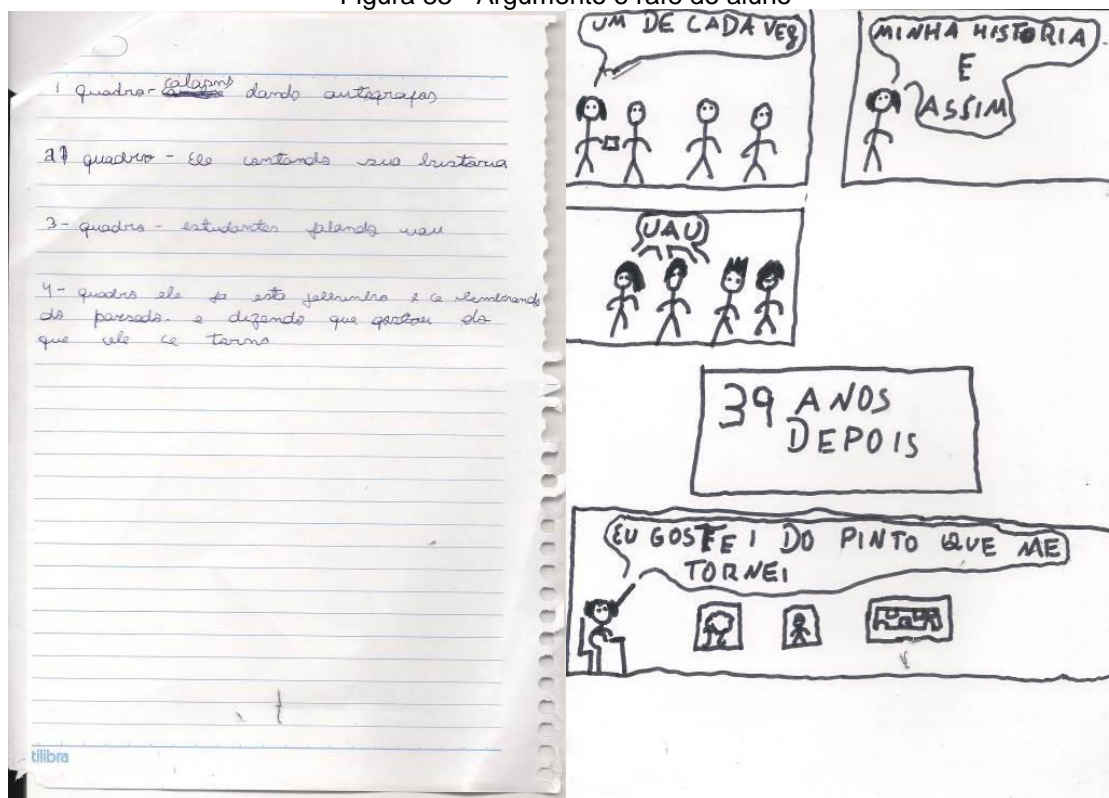 Figura 38 - Argumento e rafe do aluno
1 quadro - dando autografos
2 quadro - Ele contando sua historia
3 - quadro - estudantes falando uau
4 - quadro ele ja esta e ce lembrando
do passado. e dizendo que gostou do
que ele ce torno
tilibra
UM DE CADA VEZ
MINHA HISTORIA
E
ASSIM
UAU
39 ANOS
DEPOIS
EU GOSTEI DO PINTO QUE ME
TORNEI